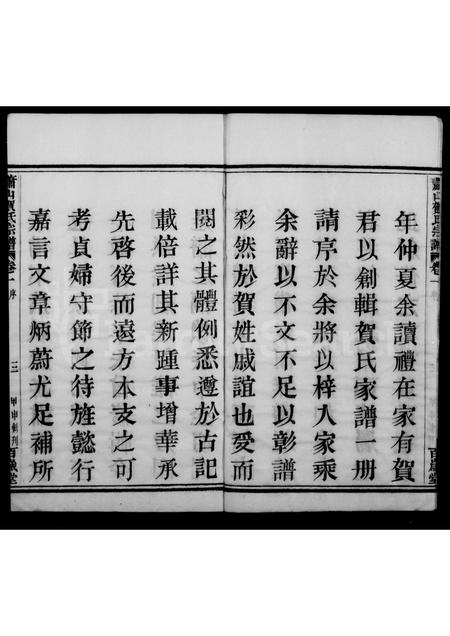 年仲夏余讀禮在家有賀
君以創輯賀氏家譜一册
請序於余將以梓入家乘
余辭以不文不足以彰譜
彩然於賀姓戚誼也受而
閱之其體例悉遵於古記
載倍詳其新踵事增華承
先啓後而遠方本支之可
考貞婦守節之待旌懿行
嘉言文章炳蔚尤足補所
蕭山賀氏宗譜
卷一
序
三
甲申輯刊
百歲堂